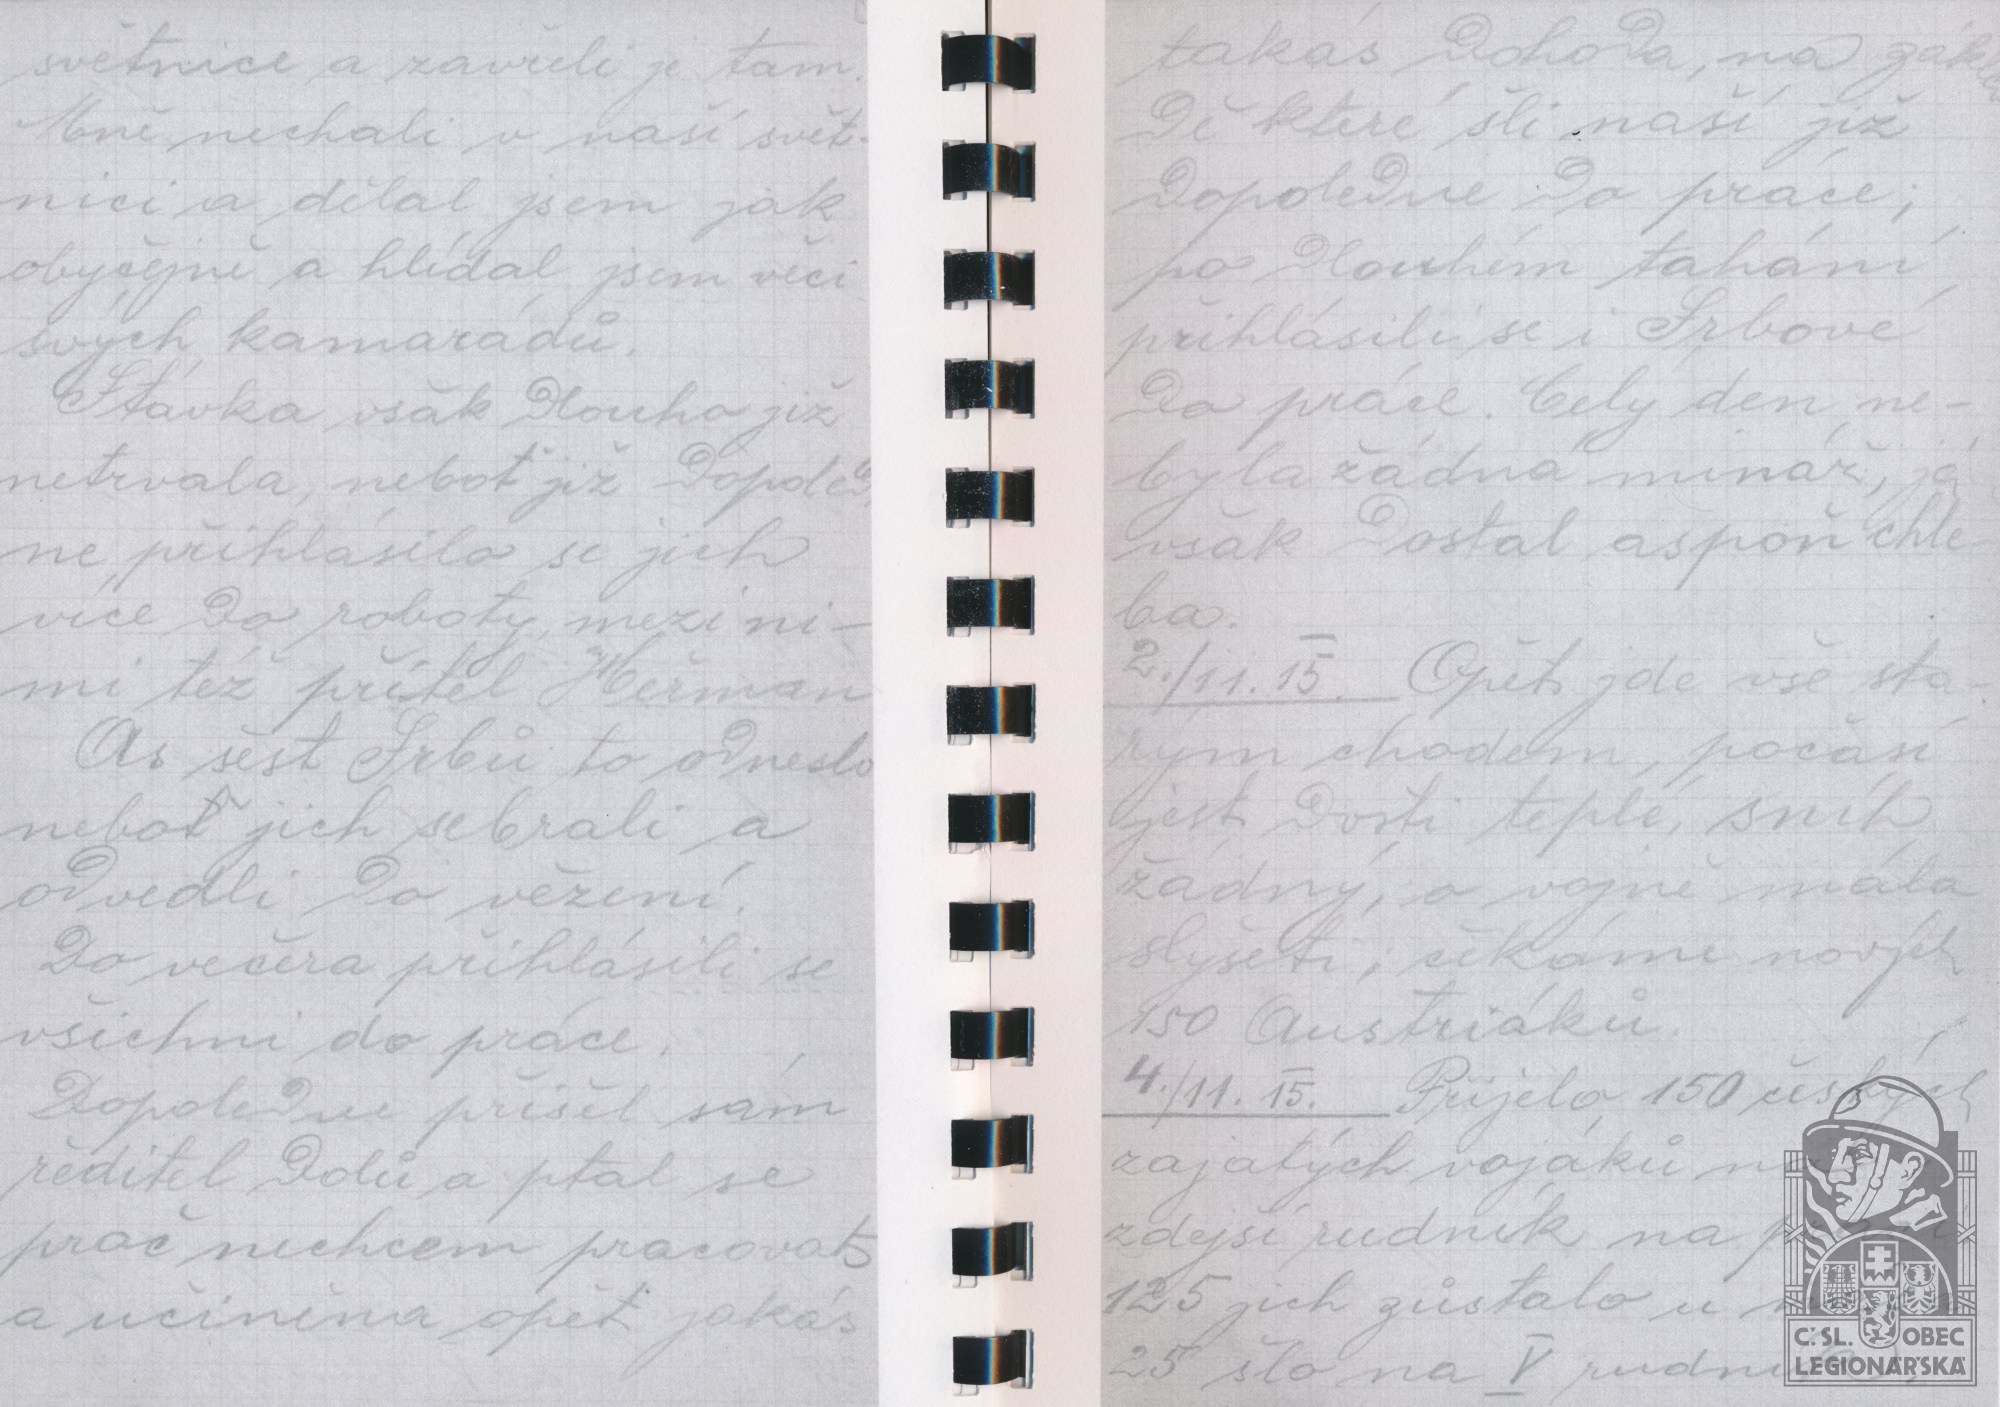 světnice a zavřeli je tam.
Mně nechali v naší svět-
nici a dělal jsem jak
obyčejně a hlídal jsem věci
svých kamarádů.
Stávka však dlouho již
netrvala, neboť již dopoled-
ne přihlásilo se jich
více do roboty, mezi ni-
mi též přítel Heřman
As šest Srbů to odneslo
neboť jich sebrali a
odvedli do vězení.
Do večera přihlásili se
všichni do práce.
Dopoledne přišel sám
ředitel dolů a ptal se
proč nechcem pracovat
a učiněna opět jakás
takás dohoda, na zákla
dě které šli naší již
dopoledne do práce;
po dlouhém tahání
přihlásili se i Srbové
do práce. Celý den ne-
byla žádná mináž, já
však dostal aspoň chle-
ba.
2./11. 15. Opět jde vše sta-
rým chodem, počasí
jest dosti teplé, sníh
žádný, o vojně málo
slyšeti; čekáme nových
150 Austriáků.
4./11. 15. Přijelo 150 českých
zajatých vojáků na
zdejší rudník na
125 jich zůstalo u
25 šlo na V
Č.SL. OBEC
LEGIONÁŘSKÁ